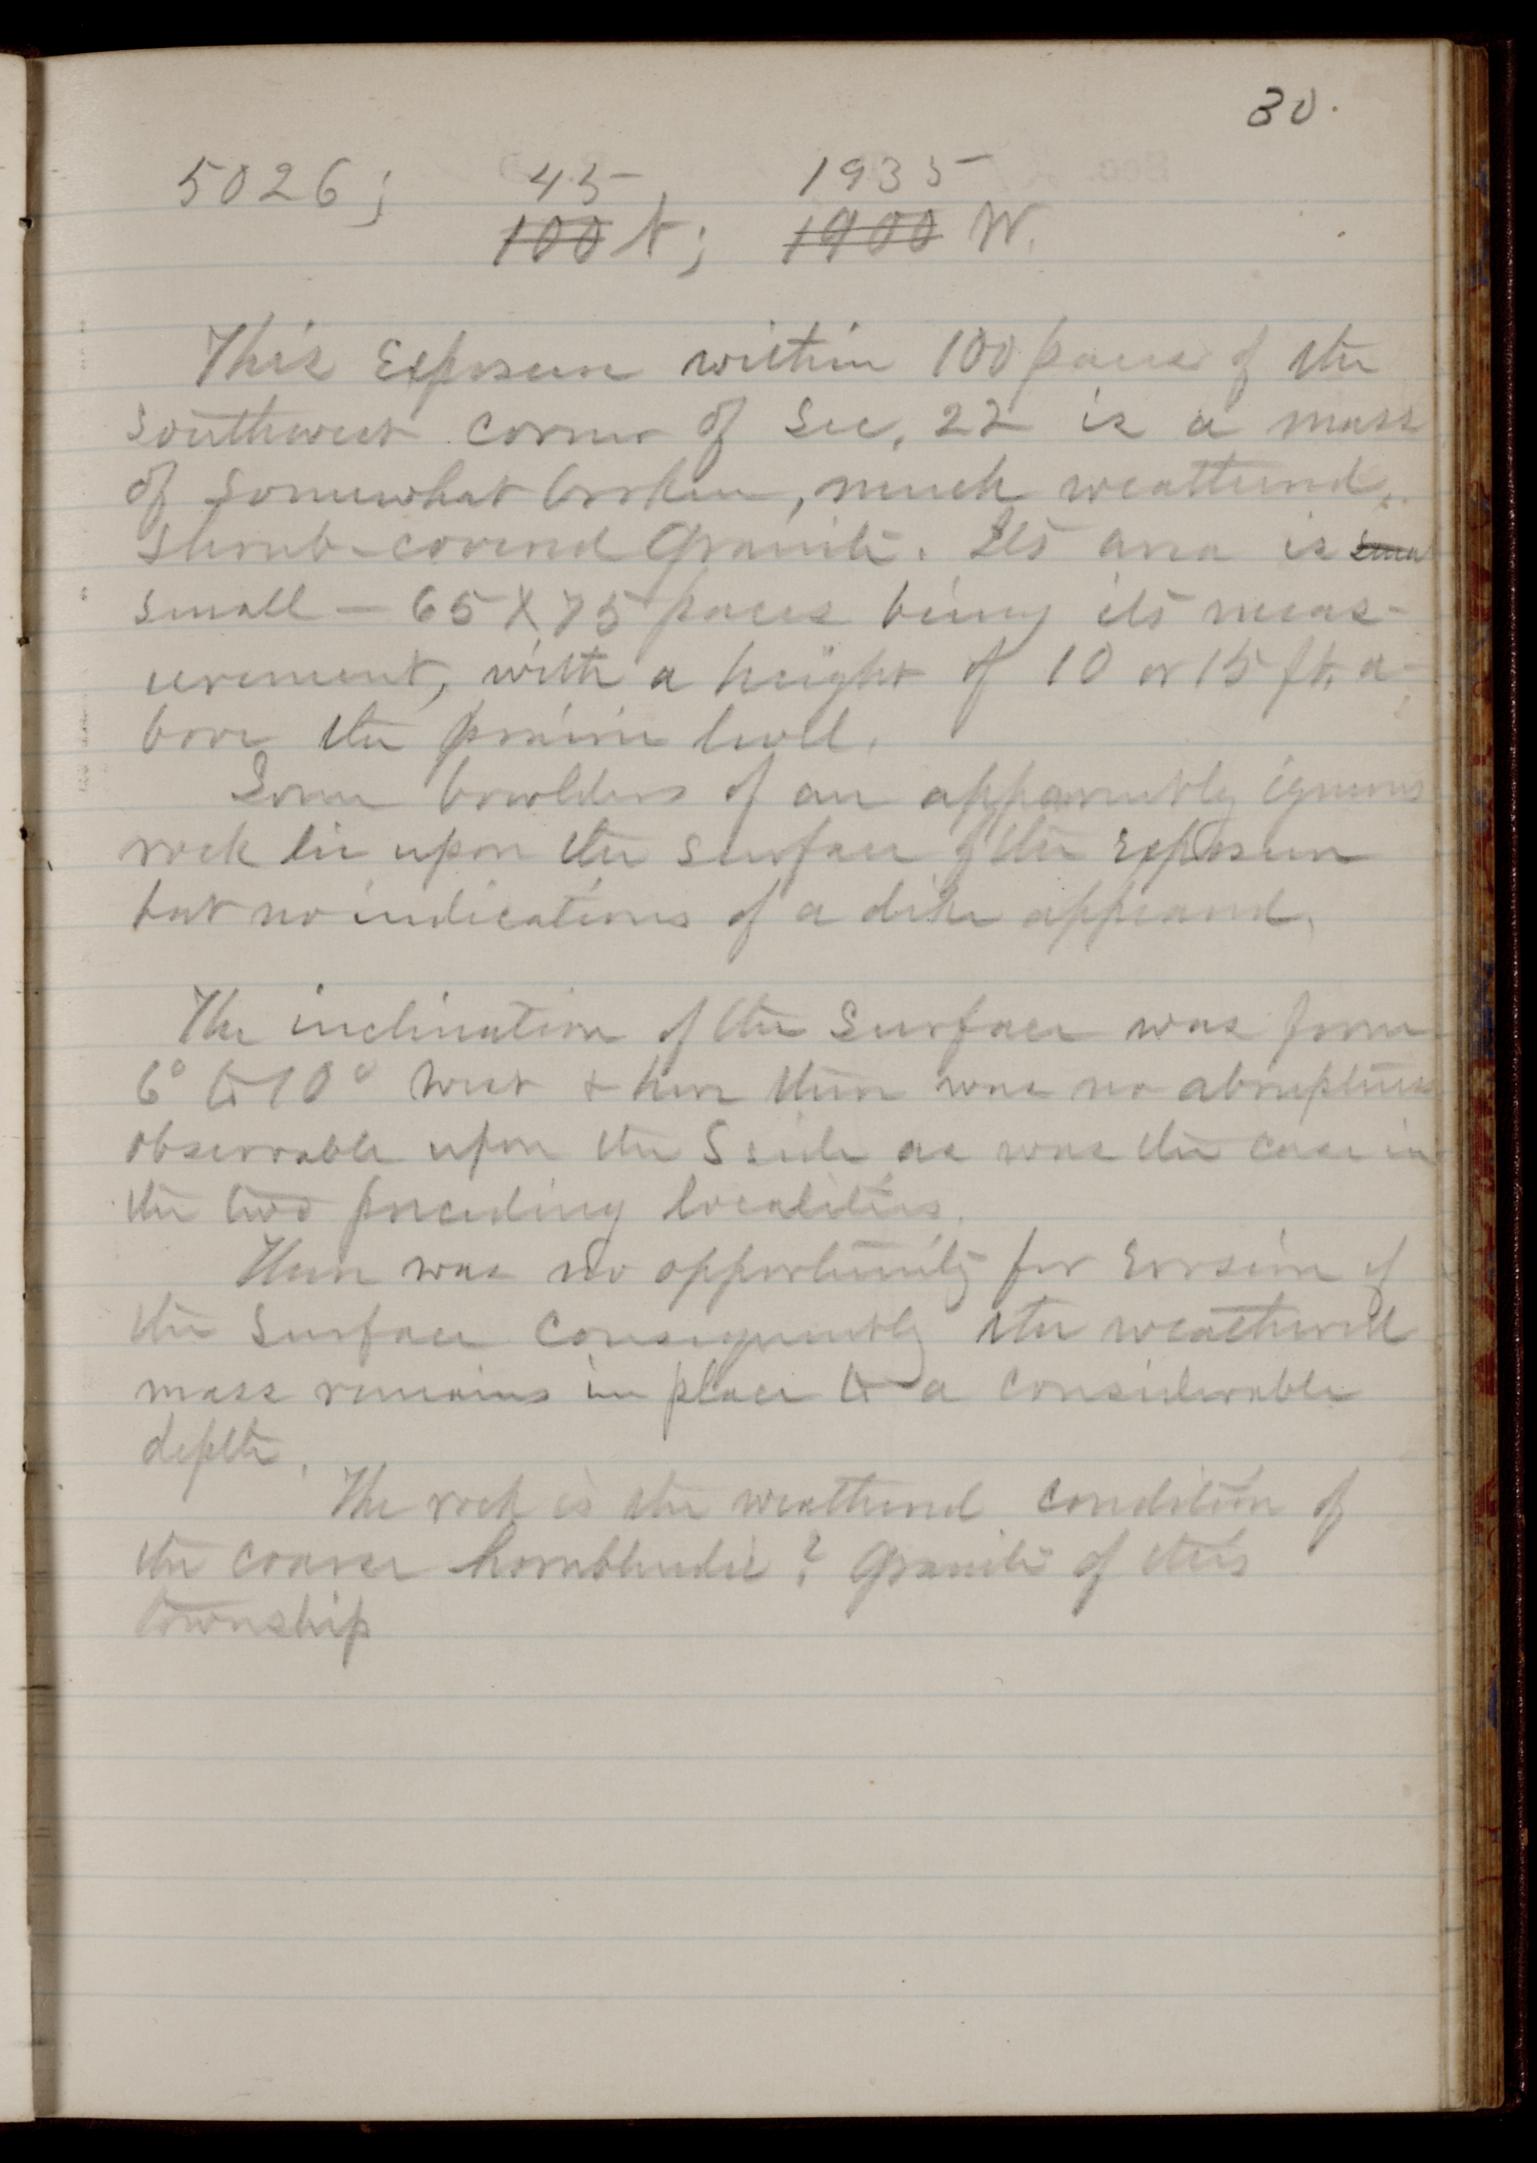 30.
5026; 45 1935
100 N; 1900 W.
This Exposure within 100 paces of the
southwest corner of Sec. 22 is a mass
of somewhat broken, much weathered,
shrub-covered granite. Its area is
small — 65 X 75 paces being its meas-
urement, with a height of 10 or 15 ft. a-
bove the prairie level.
Some bowlders of an apparently igneous
rock lie upon the surface of the exposure
but no indications of a dike appeared.
The inclination of the surface was from
6° to 10° west & here there was no abruptness
observable upon the S side as was the case in
the two preceding localities.
There was no opportunity for erosion of
the surface consequently the weathered
mass remains in place to a considerable
depth.
The rock is the weathered condition of
the coarse hornblendic? granite of this
township